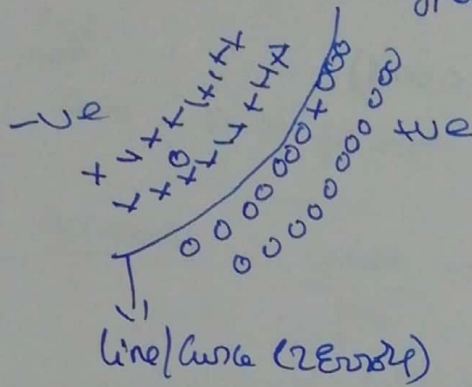 -ve
+ve
Line/Curve (2Errors)